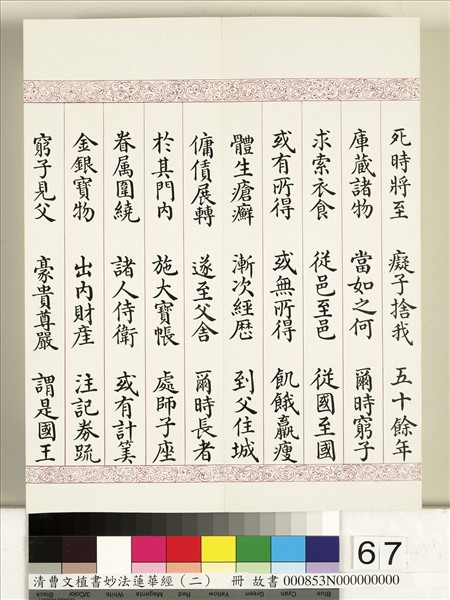 死時將至 癡子捨我 五十餘年
庫藏諸物 當如之何 爾時窮子
求索衣食 從邑至邑 從國至國
或有所得 或無所得 飢餓羸瘦
體生瘡癬 漸次經歷 到父住城
傭賃展轉 遂至父舍 爾時長者
於其門內 施大寶帳 處師子座
眷属圍繞 諸人侍衛 或有計筭
金銀寶物 出內財産 注記券䟽
窮子見父 豪貴尊嚴 謂是國王
67
清曹文植書妙法蓮華經（二） 冊 故書 000853N000000000
Black 3/Color White Magenta Red Yellow Green Cyan Blue